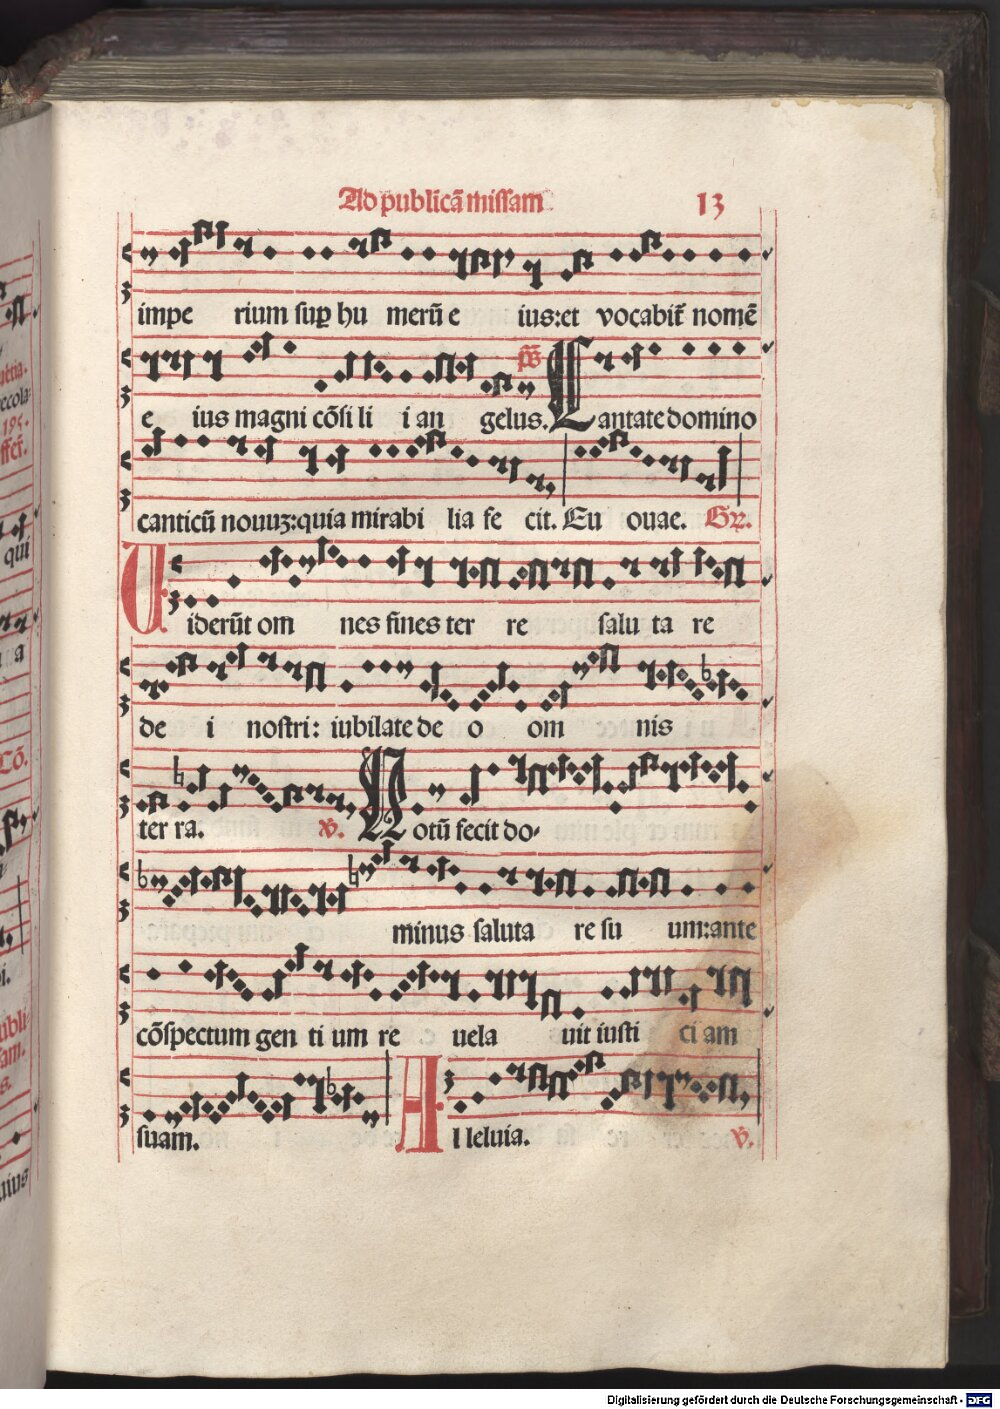 Ad publicā missam 13
impe rium suꝑ hu merū e ius:et vocabit̄ nomē
e ius magni cōsi li i an gelus. ps̄ Cantate domino
canticū nouuꝫ:quia mirabi lia fe cit. Eu ouae. Gr̄.
Uiderūt om nes fines ter re salu ta re
de i nostri: iubilate de o om nis
ter ra. ℣. Notū fecit do-
minus saluta re su um:ante
cōspectum gen ti um re uela uit iusti ci am
suam. Al leluia. ℣.
qui
a
Cō.
Digitalisierung gefördert durch die Deutsche Forschungsgemeinschaft - DFG